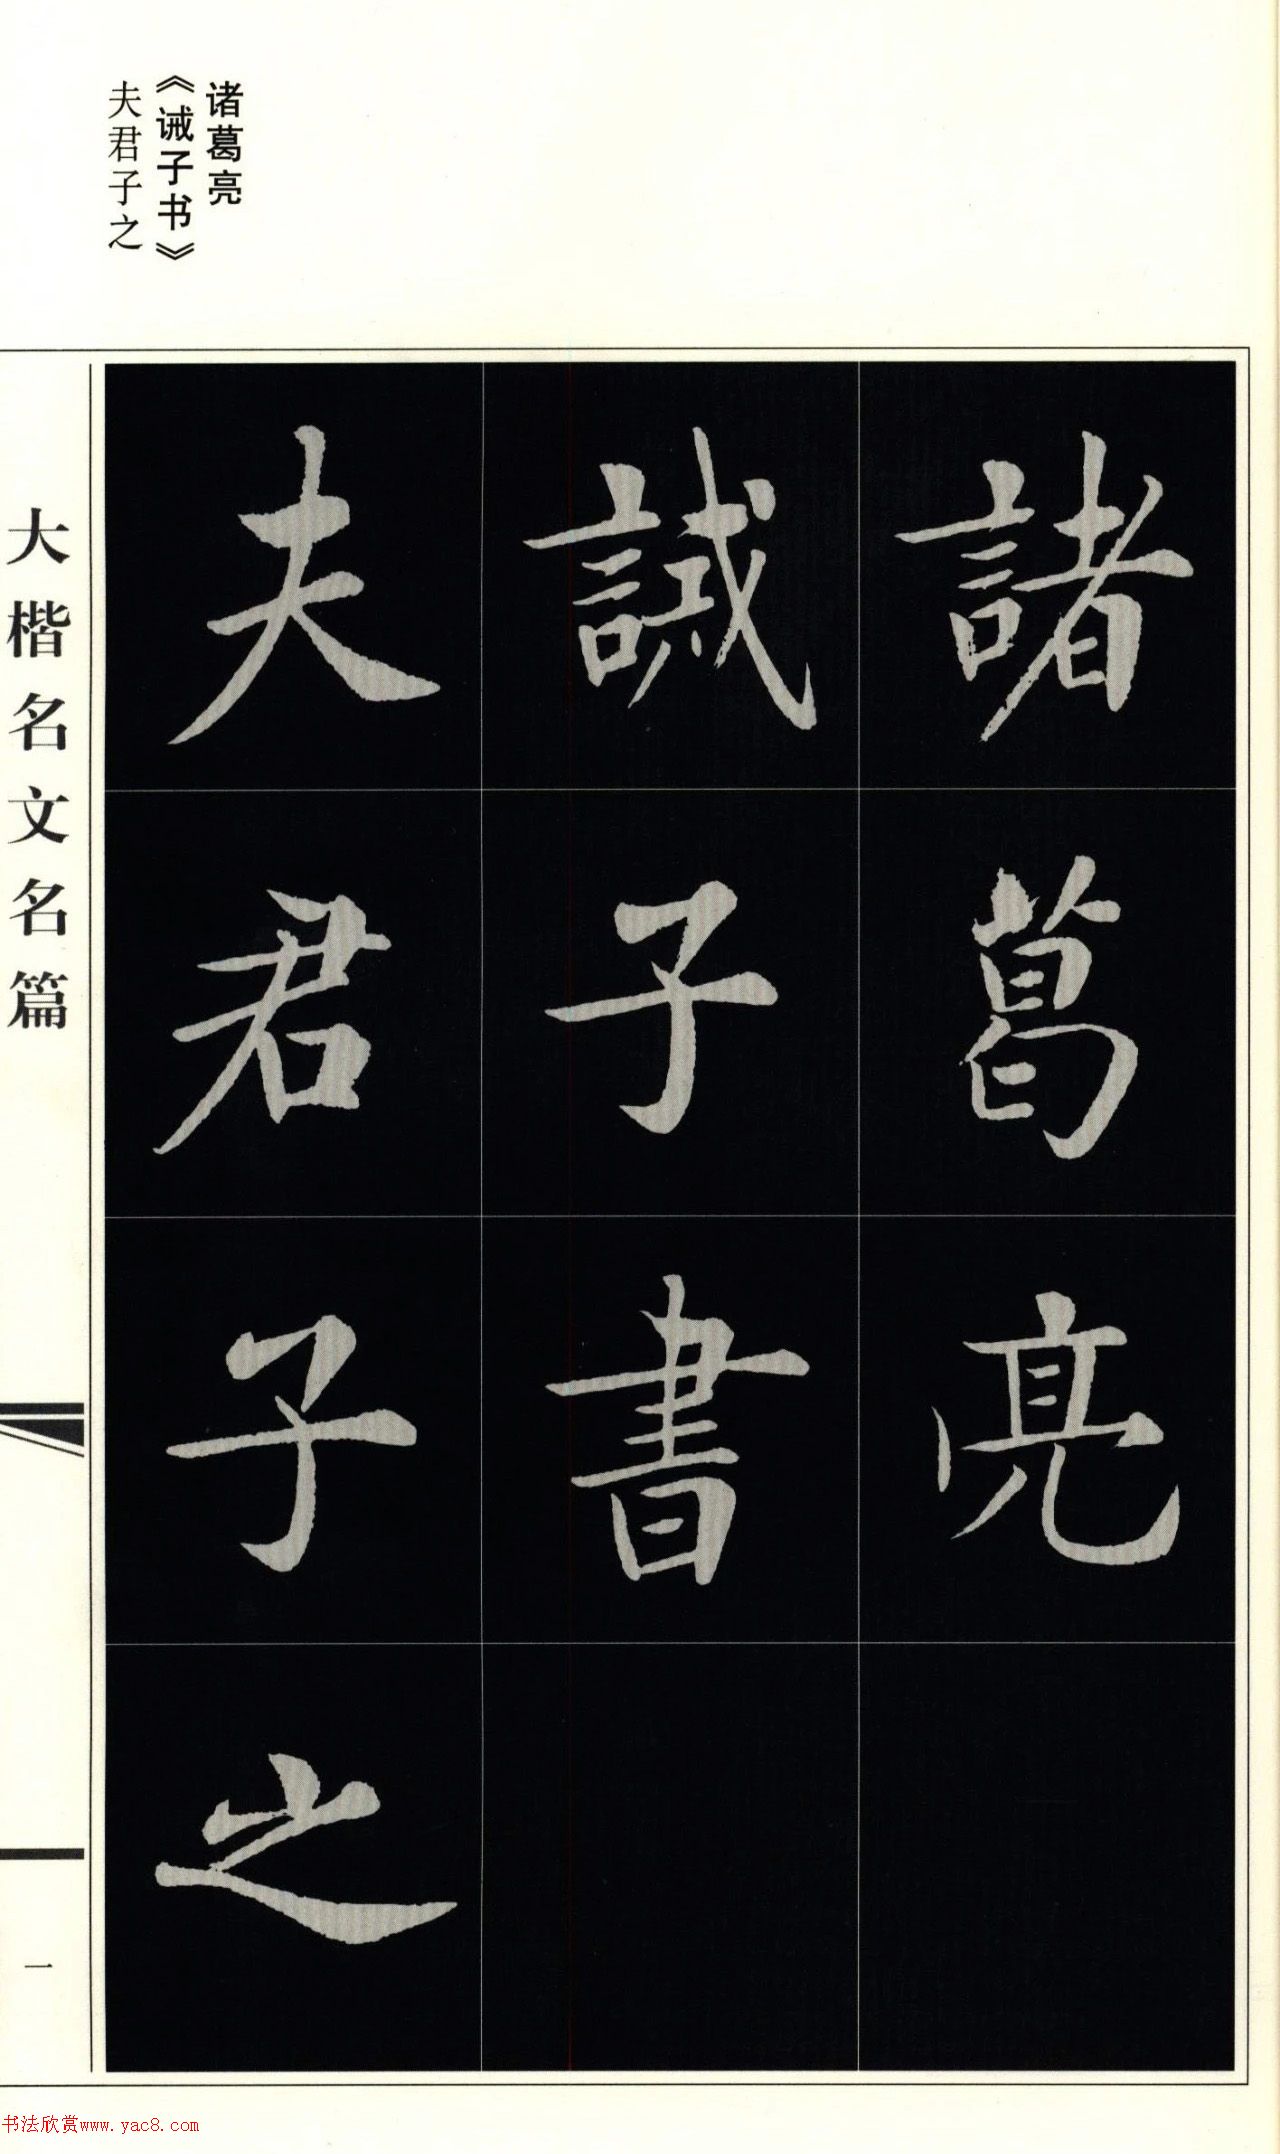 诸葛亮
《诫子书》
夫君子之
諸葛亮
誡子書
夫君子之
大楷名文名篇
一
书法欣赏www.yac8.com